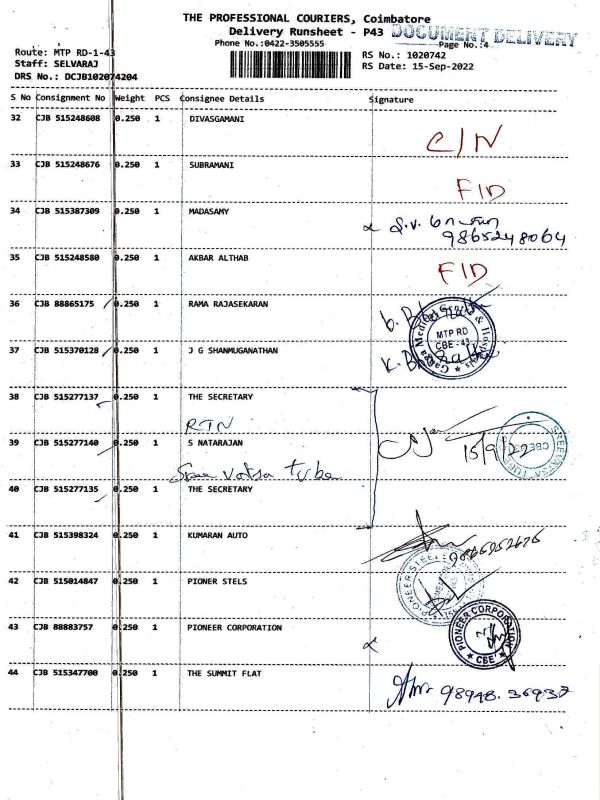 THE PROFESSIONAL COURIERS, Coimbatore
Delivery Runsheet - P43 DOCUMENT DELIVERY
Phone No.:0422-3505555 Page No.:4
Route: MTP RD-1-43 RS No.: 1020742
Staff: SELVARAJ RS Date: 15-Sep-2022
DRS No.: DCJB102074204
S No Consignment No Weight PCS Consignee Details Signature
32 CJB 515248608 0.250 1 DIVASGAMANI
C/N
33 CJB 515248676 0.250 1 SUBRAMANI
FID
34 CJB 515387309 0.250 1 MADASAMY
9865248064
35 CJB 515248580 0.250 1 AKBAR ALTHAB
FID
36 CJB 88865175 0.250 1 RAMA RAJASEKARAN
Ganga Medical Centre & Hospitals
MTP RD
CBE - 43
37 CJB 515370128 0.250 1 J G SHANMUGANATHAN
38 CJB 515277137 0.250 1 THE SECRETARY
RTN
39 CJB 515277140 0.250 1 S NATARAJAN
15/9/22
Sree vatsa
40 CJB 515277135 0.250 1 THE SECRETARY
41 CJB 515398324 0.250 1 KUMARAN AUTO
42 CJB 515014847 0.250 1 PIONER STELS
PIONEER STEEL
43 CJB 88883757 0.250 1 PIONEER CORPORATION
PIONEER CORPORATION
CBE
44 CJB 515347700 0.250 1 THE SUMMIT FLAT
98948.36932